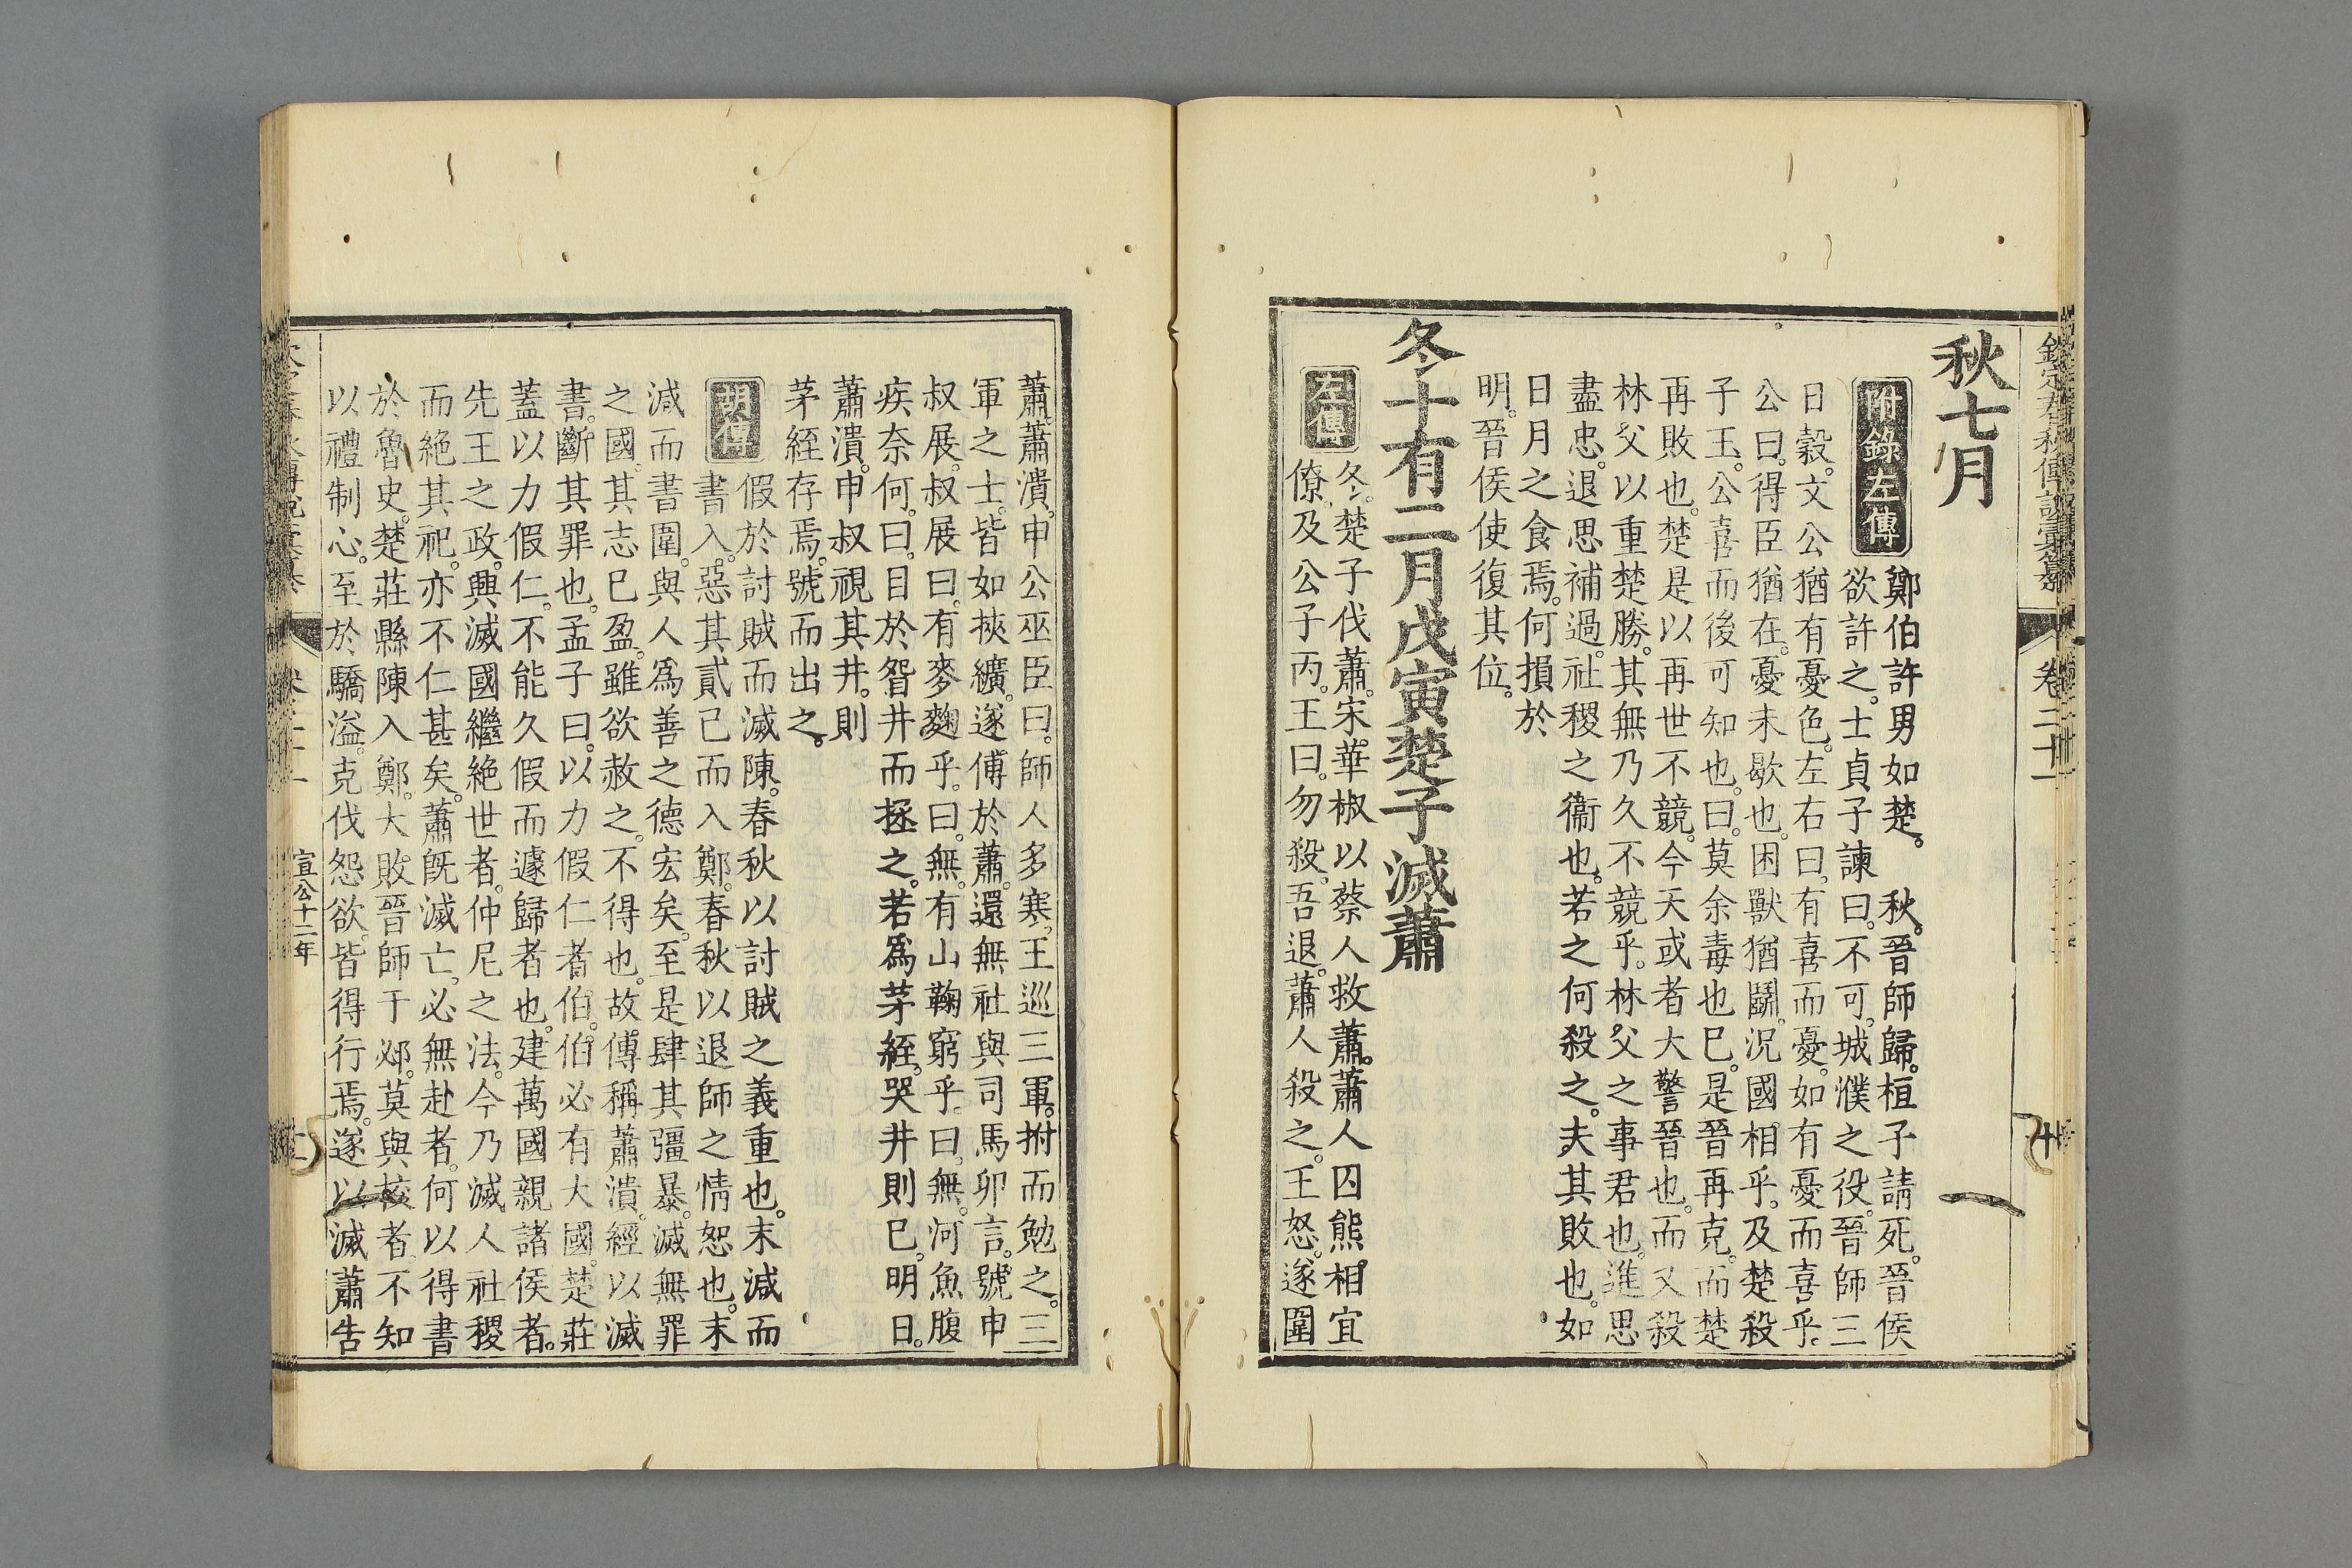 欽定春秋傳說彙纂 卷二十一
秋七月
附錄左傳
鄭伯許男如楚。 秋。晉師歸。桓子請死。晉侯
欲許之。士貞子諫曰。不可。城濮之役。晉師三
日穀。文公猶有憂色。左右曰。有喜而憂。如有憂而喜乎。
公曰。得臣猶在。憂未歇也。困獸猶鬭。況國相乎。及楚殺
子玉。公喜而後可知也。曰。莫余毒也已。是晉再克。而楚
再敗也。楚是以再世不競。今天或者大警晉也。而又殺
林父以重楚勝。其無乃久不競乎。林父之事君也。進思
盡忠。退思補過。社稷之衞也。若之何殺之。夫其敗也。如
日月之食焉。何損於
明。晉侯使復其位。
冬十有二月戊寅楚子滅蕭
左傳
冬。楚子伐蕭。宋華椒以蔡人救蕭。蕭人囚熊相宜
僚。及公子丙。王曰。勿殺。吾退。蕭人殺之。王怒。遂圍
蕭。蕭潰。申公巫臣曰。師人多寒。王巡三軍。拊而勉之。三
軍之士。皆如挾纊。遂傅於蕭。還無社與司馬卯言。號申
叔展。叔展曰。有麥麴乎。曰。無。有山鞠窮乎。曰。無。河魚腹
疾奈何。曰。目於眢井而拯之。若爲茅絰。哭井則已。明日。
蕭潰。申叔視其井。則
茅絰存焉。號而出之。
胡傳
假於討賊而滅陳。春秋以討賊之義重也。末減而
書入。惡其貳已而入鄭。春秋以退師之情恕也。末
減而書圍。與人爲善之德宏矣。至是肆其彊暴。滅無罪
之國。其志已盈。雖欲赦之。不得也。故傳稱蕭潰。經以滅
書。斷其罪也。孟子曰。以力假仁者伯。伯必有大國。楚莊
蓋以力假仁。不能久假而遽歸者也。建萬國親諸侯者。
先王之政。興滅國繼絶世者。仲尼之法。今乃滅人社稷
而絶其祀。亦不仁甚矣。蕭旣滅亡。必無赴者。何以得書
於魯史。楚莊縣陳入鄭。大敗晉師于邲。莫與校者。不知
以禮制心。至於驕溢。克伐怨欲。皆得行焉。遂以滅蕭告
宣公十二年